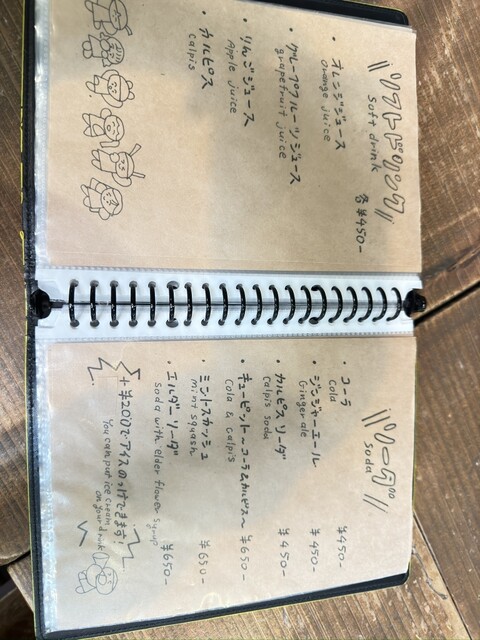 ソフトドリンク
Soft drink
各¥450-
・オレンジジュース
Orange juice
・グレープフルーツジュース
grapefruit juice
・りんごジュース
Apple juice
・カルピス
calpis
ソーダ
soda
・コーラ ¥450-
Cola
・ジンジャーエール ¥450-
Ginger ale
・カルピスソーダ ¥450-
Calpis soda
・キューピット~コーラ&カルピス~ ¥650-
Cola & calpis
・ミントスカッシュ ¥650-
mint squash
・エルダーソーダ ¥650-
soda with elder flower syrup
+¥200でアイスのっけできます!
You can put ice cream
on your drink